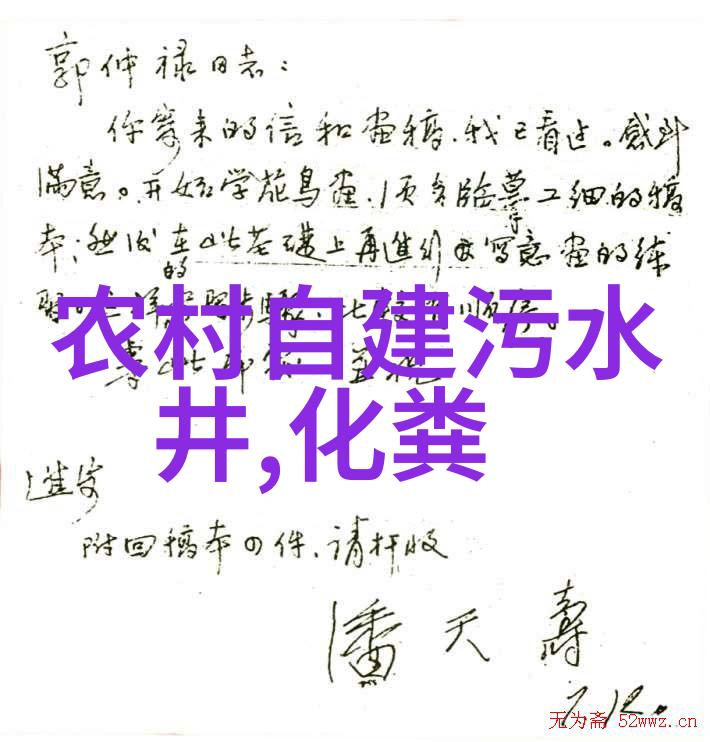 郭仲禄同志：
你寄来的信和画稿，我已看过。感到
满意。开始学花鸟画，须多临摹工细的稿
本；然后在此基础上再进行写意画的练
的
农村自建污水
井,化粪
进步
附回稿本四件、请检收
潘天寿
7.12.
无为斋 52wwz.cn